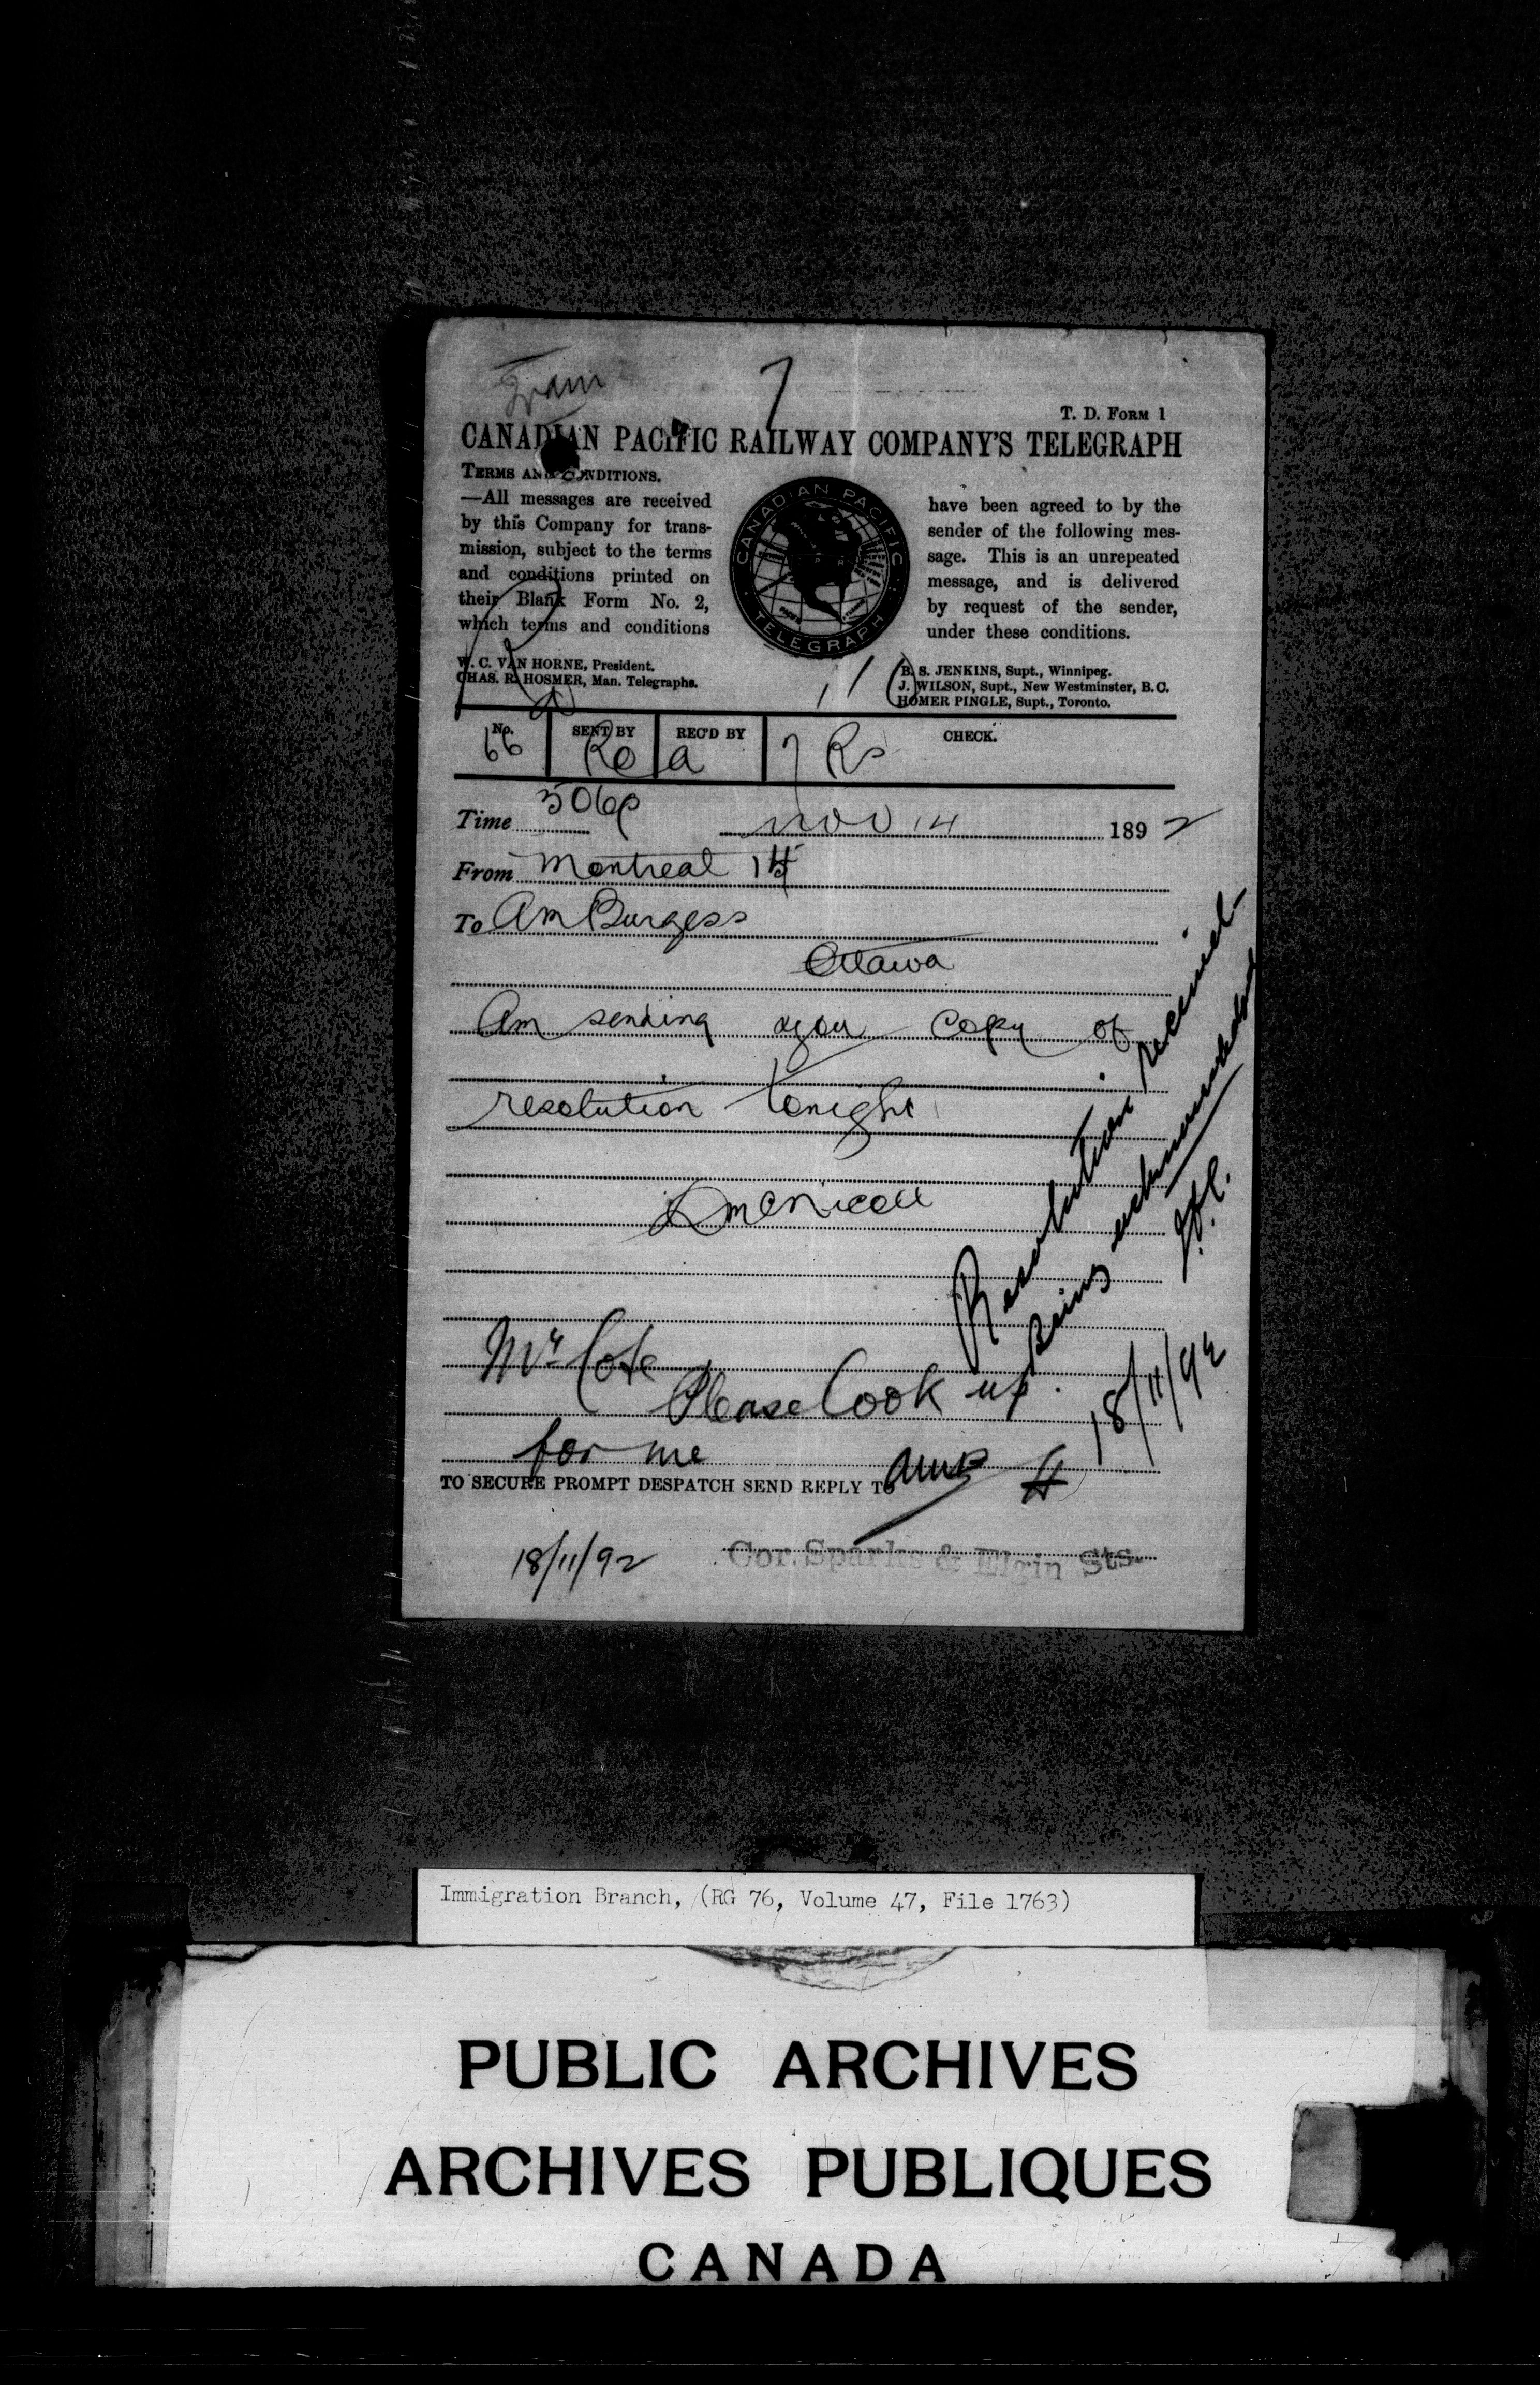 7
T. D. FORM 1
CANADIAN PACIFIC RAILWAY COMPANY'S TELEGRAPH
TERMS AND CONDITIONS.
—All messages are received
by this Company for trans-
mission, subject to the terms
and conditions printed on
their Blank Form No. 2,
which terms and conditions
CANADIAN PACIFIC
TELEGRAPH
have been agreed to by the
sender of the following mes-
sage. This is an unrepeated
message, and is delivered
by request of the sender,
under these conditions.
W. C. VAN HORNE, President.
CHAS. R. HOSMER, Man. Telegraphs.
B. S. JENKINS, Supt., Winnipeg.
J. WILSON, Supt., New Westminster, B.C.
HOMER PINGLE, Supt., Toronto.
No. 66 SENT BY Ro REC'D BY a CHECK.
Time 506p Nov 14 1892
From Montreal 14
To Am Burgess
Ottawa
Am sending you copy of
resolution tonight
D McNicoll
Resolution received
Being acknowledged
18/11/92
Mr Cote
Please look up
for me
TO SECURE PROMPT DESPATCH SEND REPLY TO
AMB
18/11/92
Cor. Sparks & Elgin Sts.
Immigration Branch, (RG 76, Volume 47, File 1763)
PUBLIC ARCHIVES
ARCHIVES PUBLIQUES
CANADA